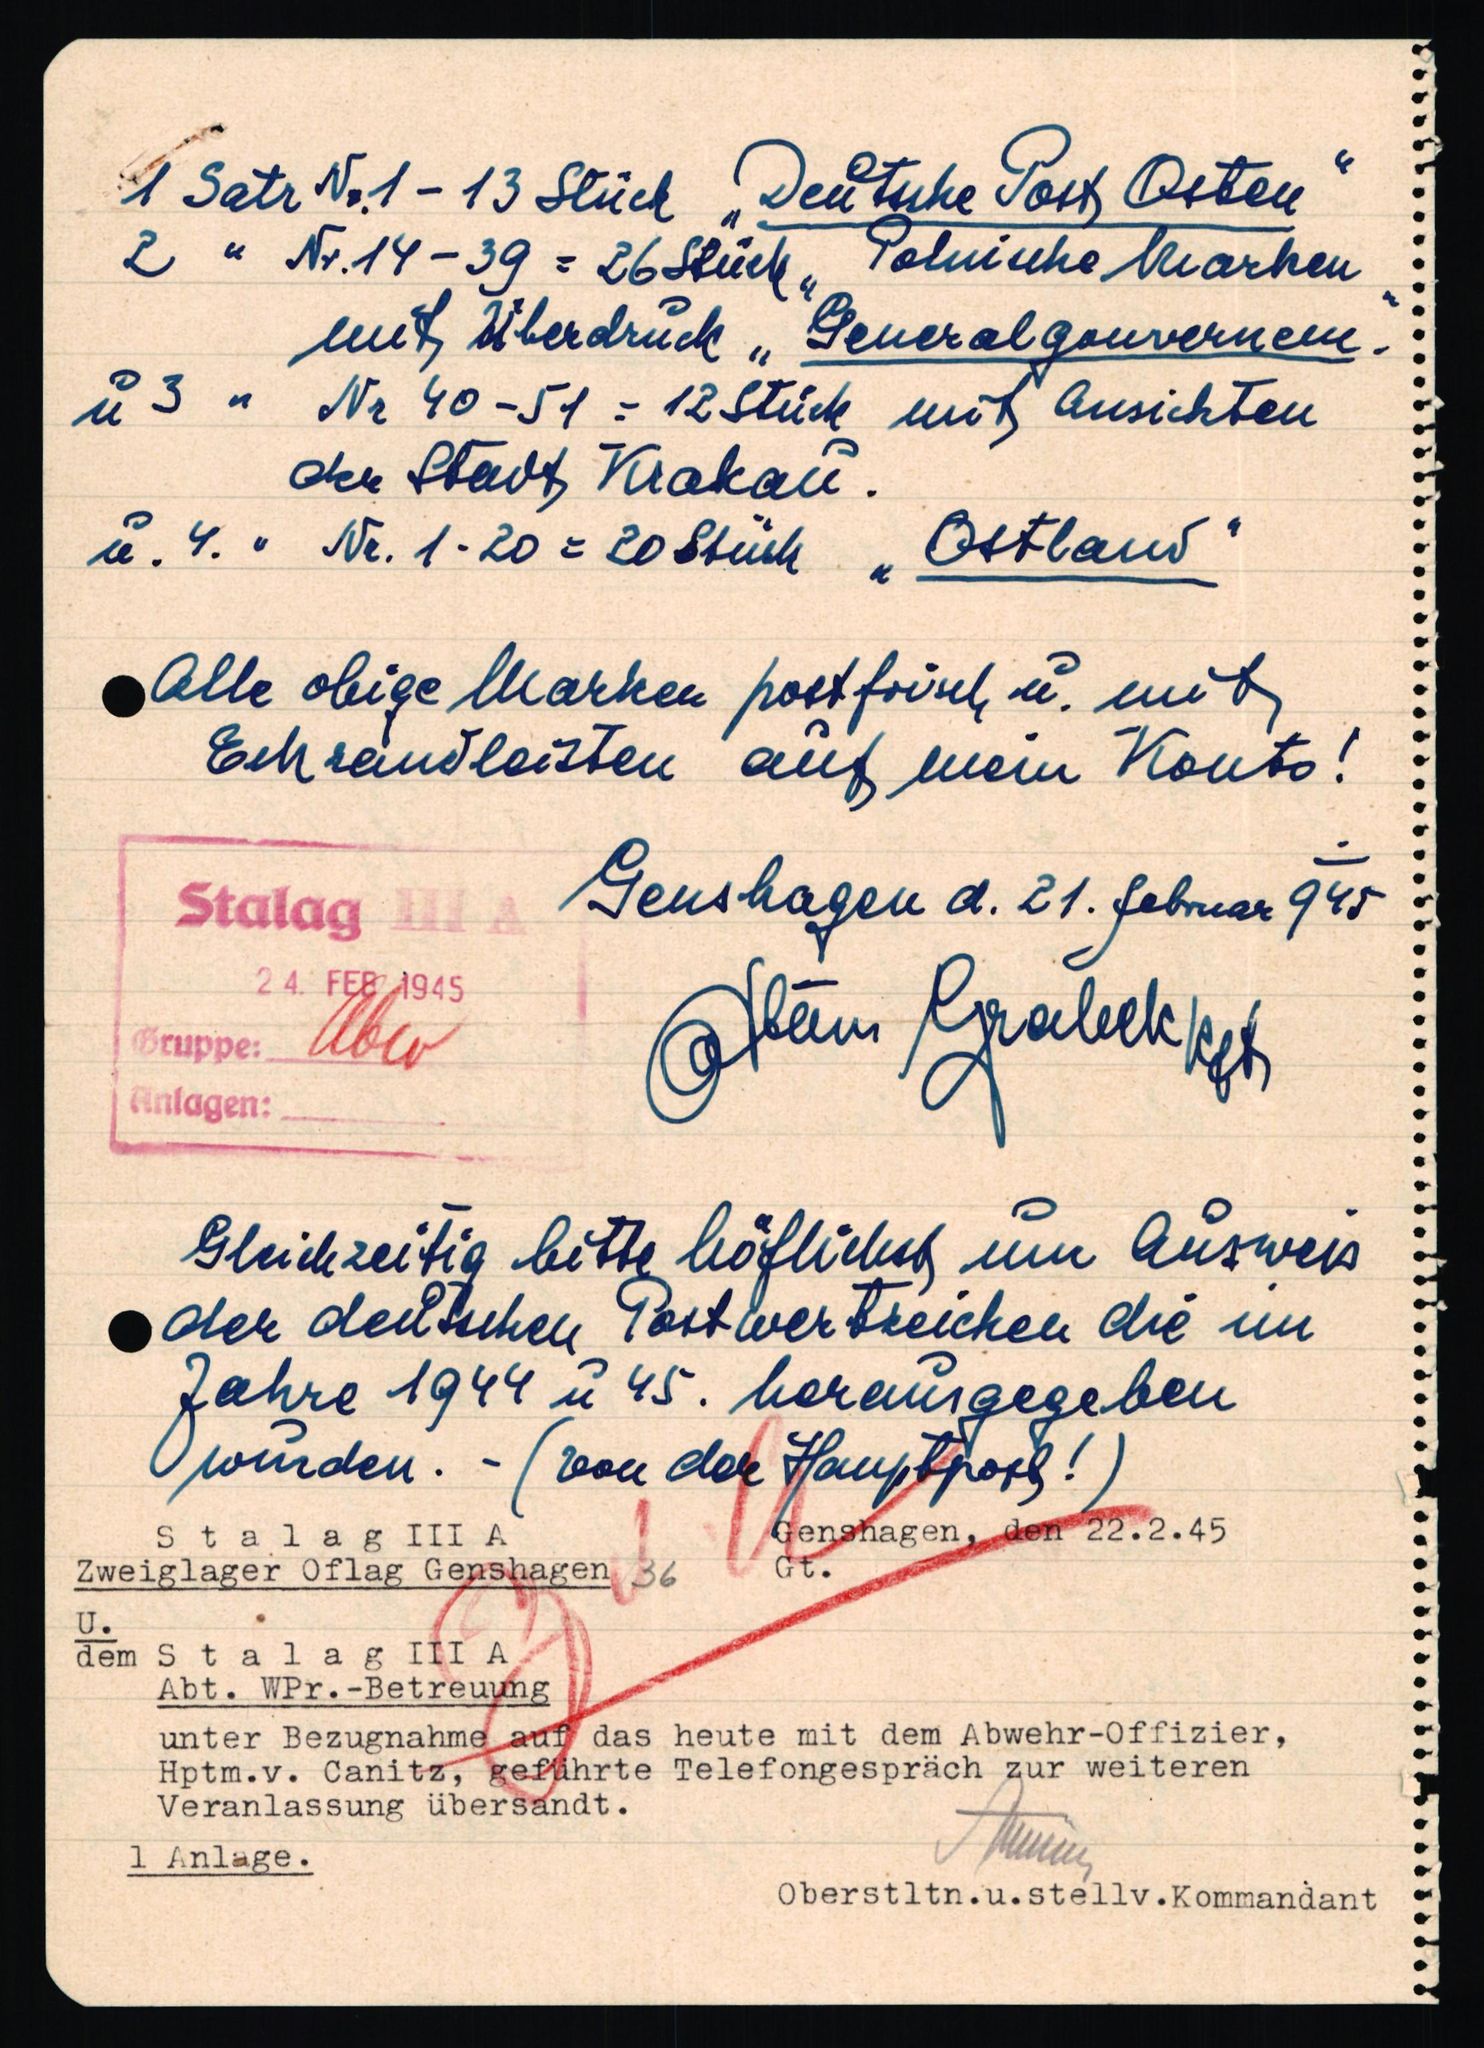 1 Satz Nr. 1 – 13 Stück „Deutsche Post Osten“
2 " Nr. 14 – 39 = 26 Stück „Polnische Marken
mit Überdruck „Generalgouvernem.“
u 3 " Nr 40 – 51 = 12 Stück mit Ansichten
der Stadt Krakau.
u. 4. " Nr. 1 - 20 = 20 Stück „Ostland“
Alle obige Marken postfrisch u. mit
Eckrandleisten auf mein Konto!
Stalag III A
24. FEB 1945
Gruppe: Abw
Anlagen:
Genshagen d. 21. Februar 945
Grabek
Gleichzeitig bitte höflichst um Ausweis
der deutschen Postwertzeichen die im
Jahre 1944 u 45. herausgegeben
wurden. - (von der Hauptpost!)
S t a l a g III A
Zweiglager Oflag Genshagen 36
Genshagen, den 22.2.45
Gt.
U.
dem S t a l a g III A
Abt. WPr.-Betreuung
unter Bezugnahme auf das heute mit dem Abwehr-Offizier,
Hptm.v. Canitz, geführte Telefongespräch zur weiteren
Veranlassung übersandt.
1 Anlage.
Oberstltn.u.stellv.Kommandant